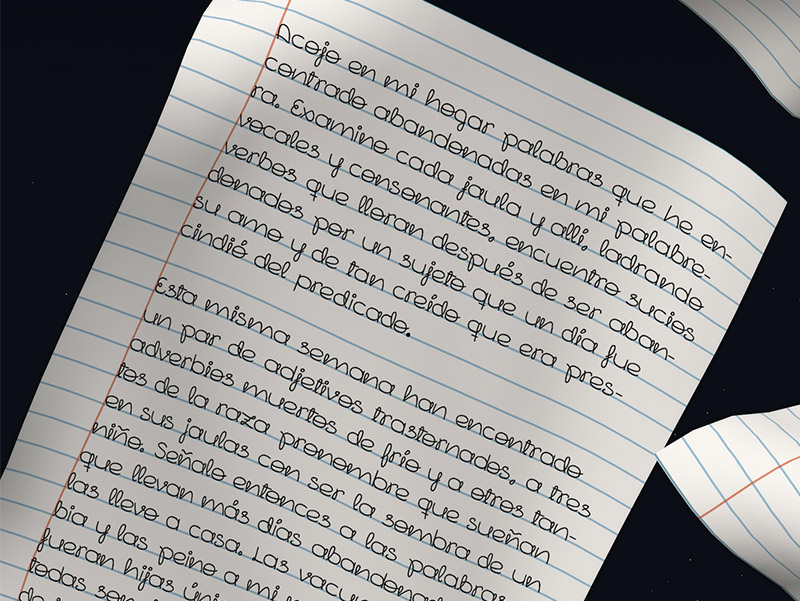 Acojo en mi hogar palabras que he en-
contrado abandonadas en mi palabre-
ra. Examino cada jaula y allí, ladrando
vocales y consonantes, encuentro sucios
verbos que lloran después de ser aban-
donados por un sujeto que un día fue
su amo y de tan creído que era pres-
cindió del predicado.
Esta misma semana han encontrado
un par de adjetivos trastornados, a tres
adverbios muertos de frío y a otros tan-
tos de la raza pronombre que sueñan
en sus jaulas con ser la sombra de un
niño. Señalo entonces a las palabras
que llevan más días abandonad
las llevo a casa. Las vacu
bia y las peino a mi
fueran hijas úni
todas son